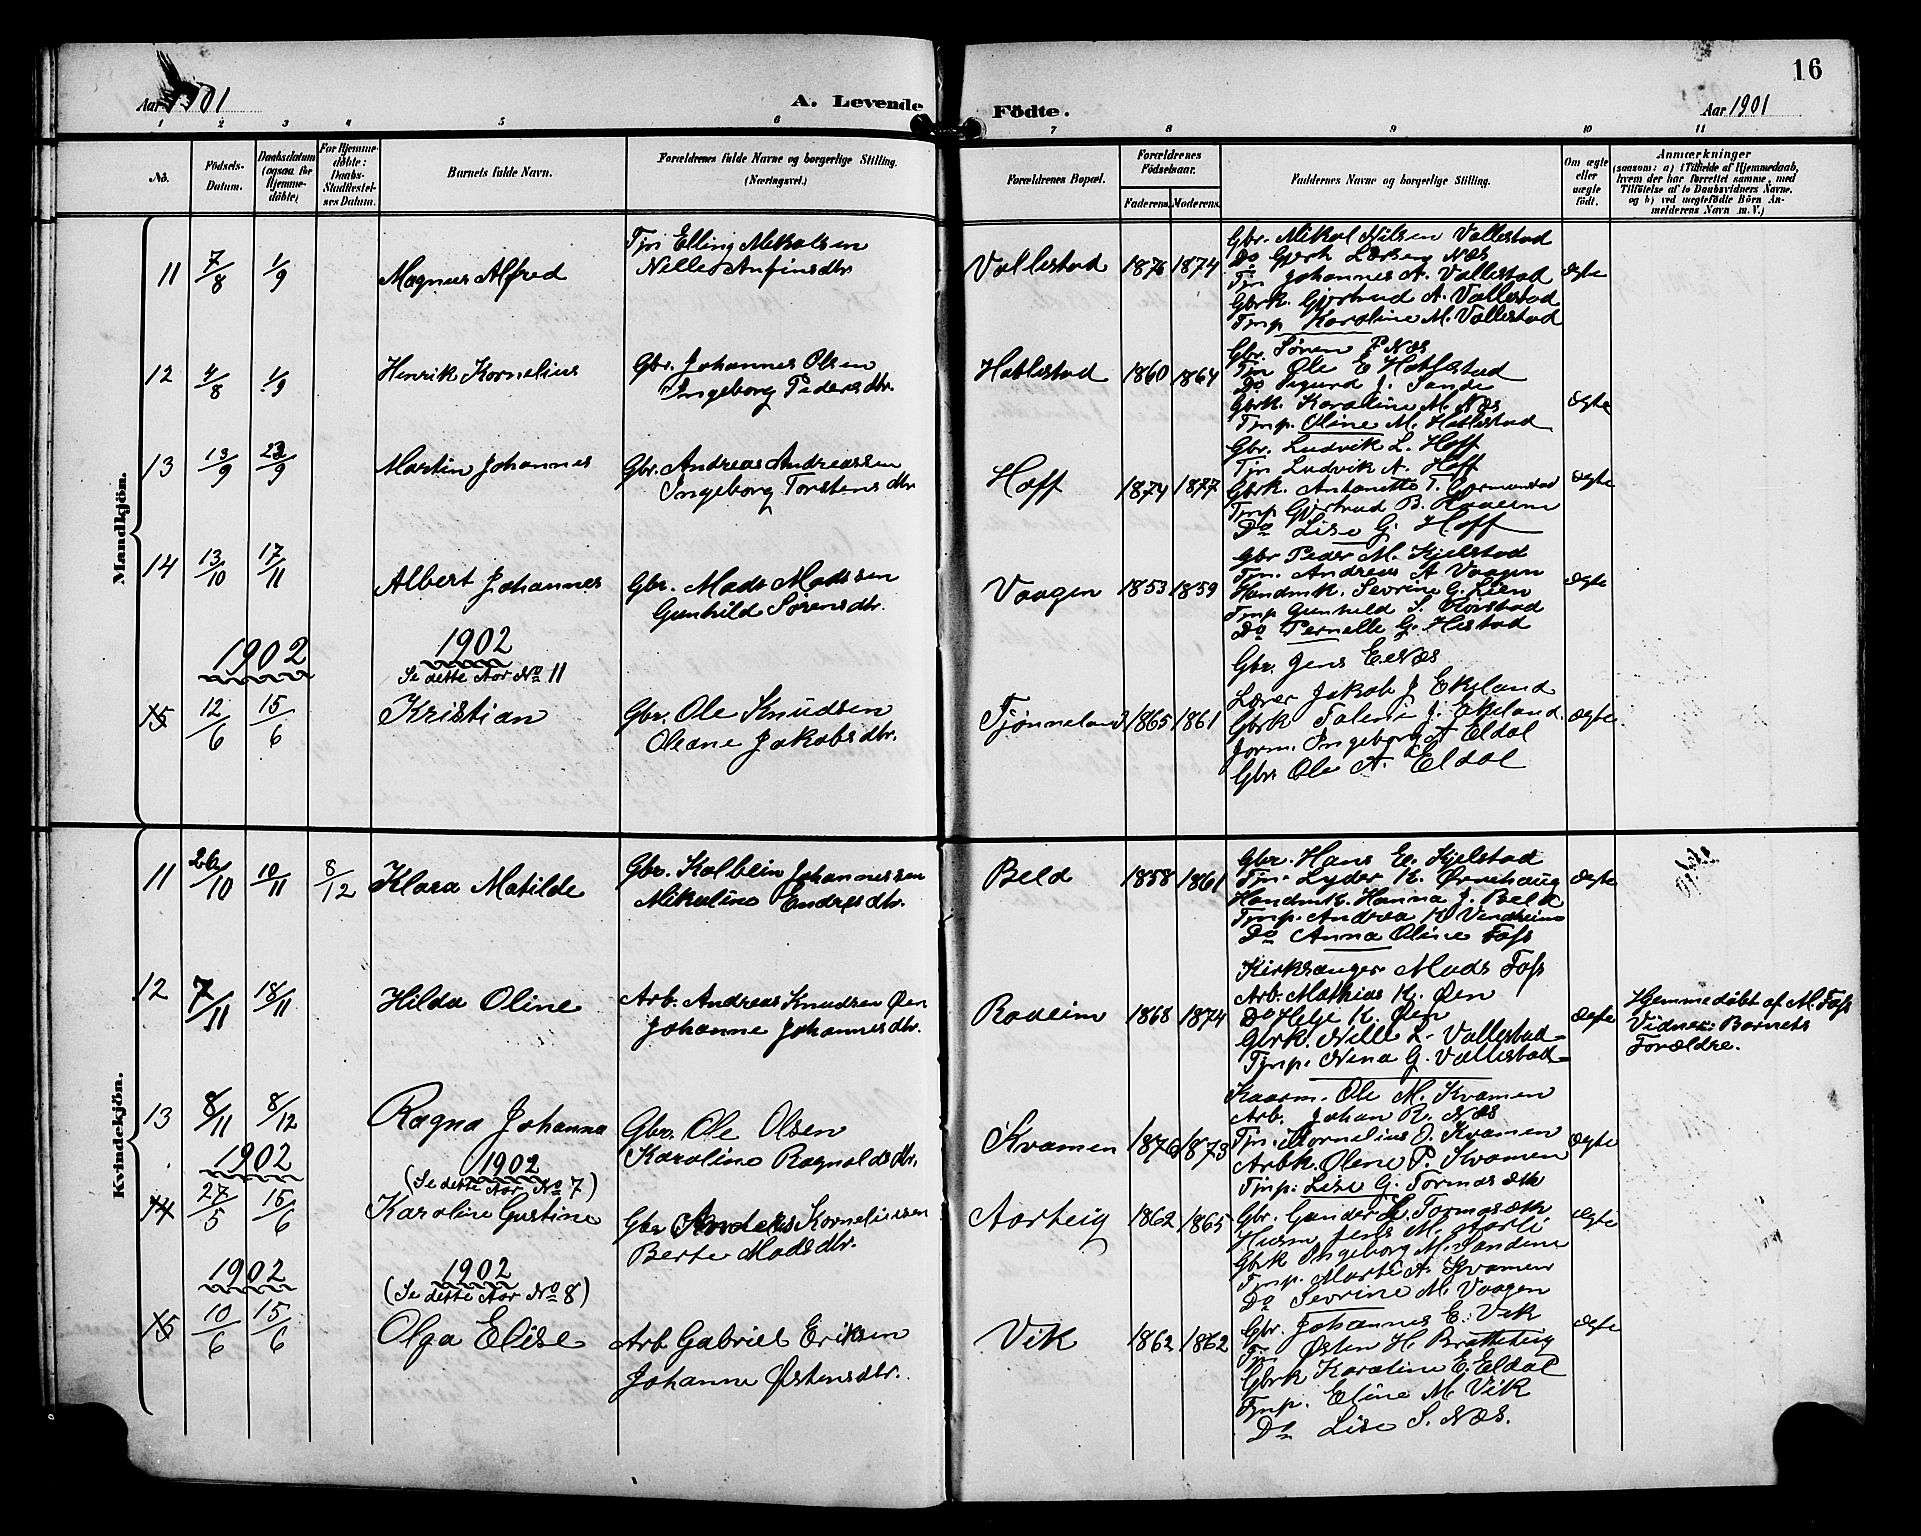 16
Aar 1901
A. Levende Födte.
Aar 1901
1 2 3 4 5 6 7 8 9 10 11
No.
Födsels-Datum.
Daabsdatum (ogsaa for Hjemme-döbte)
For Hjemme-döbte: Daabs-Stadfæstel-ses Datum.
Barnets fulde Navn.
Forældrenes fulde Navne og borgerlige Stilling. (Næringsvei.)
Forældrenes Bopæl.
Forældrenes Födselsaar.
Faderens. Moderens.
Faddernes Navne og borgerlige Stilling.
Om ægte eller uægte født.
Anmærkninger
(saasom: a) i Tilfælde af Hjemmedaab,
hvem der har forrettet samme, med
Tilföielse af to Daabsvidners Navne.
og b) ved uægtefödte Börn An-
melderens Navn m.V.)
Mandkjön.
11 7/8 1/9 Magnus Alfred
Tjn Elling Mikalsen
Nille Anfinsdtr
Vallestad 1876 1874
Gbr. Mikal Nilsen Vallestad
Do Gjert Larsen Næs
Tjn Johannes A. Vallestad
Gbrk. Gjertrud A. Vallestad
Tmp Karoline M. Vallestad
ægte
12 4/8 1/9 Henrik Kornelius
Gbr. Johannes Olsen
Ingeborg Pedersdtr.
Hatlestad 1860 1864
Gbr. Søren P. Næs
Tjn Ole E Hatlestad
Do Sigurd J. Sande
Gbrk. Karoline M. Næs
Tmp. Oline M. Hatlestad
ægte
13 13/9 22/9 Martin Johannes
Gbr. Andreas Andreassen
Ingeborg Torstensdtr
Hoff 1874 1877
Gbr. Ludvik L. Hoff
Tjn Ludvik A. Hoff
Gbrk. Antonette T.
Tmp Gjertrud B. Raaeim
Do Lise G. Hoff
ægte
14 13/10 17/11 Albert Johannes
Gbr. Mads Madssen
Gunhild Sørensdtr.
Vaagen 1853 1859
Gbr Peder M. Kjelstad
Tjn. Andreas A Vaagen
Handmk. Sevrine G. Lien
Tmp Gunhild S.
Do Pernelle G. Hestad
ægte
1902 1902
Se dette Aar No 11
15 12/6 15/6 Kristian
Gbr. Ole Knudsen
Oleane Jakobsdtr.
Tjønneland 1865 1861
Gbr. Jens E. Næs
Lærer Jakob J Ekeland
Gbrk Talene J. Ekeland.
Jorm. Ingeborg A Eldal
Gbr Ole A. Eldal
ægte
Kvindekjön.
11 26/10 10/11 8/12 Klara Matilde
Gbr. Kolbein Johannessen
Mikaline Endresdtr.
Beld 1858 1861
Gbr. Hans E. Kjelstad
Tjn. Lyder K. Ørnehaug
Handmk. Hanna J. Beld
Tmp. Andrea K Vindheim
Do Anna Oline Foss
ægte
12 7/11 18/11 Hilda Oline
Arb. Andreas Knudsen Øen
Johanne Johannesdtr.
Raaeim 1868 1874
Kirksanger Mads Foss
Arb. Mathias K. Øen
Do Helje K. Øen
Gbrk. Nille L. Vallestad
Tmp. Nena G. Vallestad
ægte
Hjemmedøbt af M. Foss
Vidner: Barnets
Forældre.
13 8/11 8/12 Ragna Johanna
Gbr. Ole Olsen
Karoline Ragnaldsdtr.
Kvamen 1876 1873
Kaarm. Ole M. Kvamen
Arb. Johan R. Næs
Tjn. Kornelius O. Kvamen
Arbk. Olene P. Kvamen
Tmp. Lise G. Tormasæth
ægte
1902 1902
(Se dette Aar No 7)
14 27/5 15/6 Karoline Gustine
Gbr Anders Korneliussen
Berte Madsdtr.
Aarteig 1862 1865
Gbr. Gunder L. Tormasæth
Husm Jens M. Aarli
Gbrk Ingeborg M. Sandene
Tmp. Marte A. Kvamen
Do Sevrine M. Vaagen
ægte
1902 1902
(Se dette Aar No 8)
15 10/6 15/6 Olga Elise
Arb Gabriel Eriksen
Johanne Østensdtr.
Vik 1862 1862
Gbr. Johannes E. Vik
Tjn Østen H. Bratteteig
Gbrk Karoline E. Eldal
Tmp. Eline M. Vik
Do Lise S. Næs.
ægte